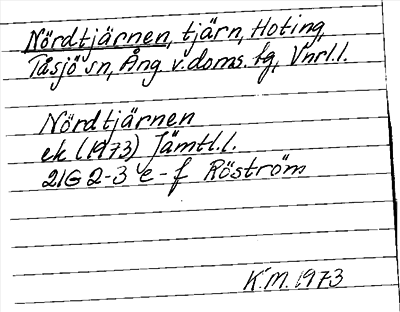 Nördtjärnen, tjärn, Hoting,
Tåsjö sn, Ång. v. doms. fg, Vnrl.l.
Nördtjärnen
ek (1973) Jämtl.l.
21G 2-3 e-f Röström
K.M. 1973